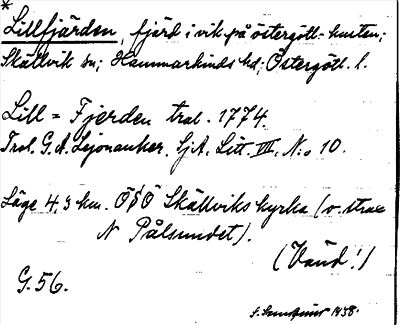 *
Lillfjärden, fjärd i vik på östergött-kusten;
Skällvik sn; Hammarkinds hd; Östergötl. l.
Lill = Fjerden tral. 1774.
Trol. G. A. Lejonanker. SjA. Litt. III, N:o 10.
Läge 4,3 km. ÖSÖ Skällviks kyrka (v. strax
N Pålsundet).
(Vänd!)
G. 56.
1938.